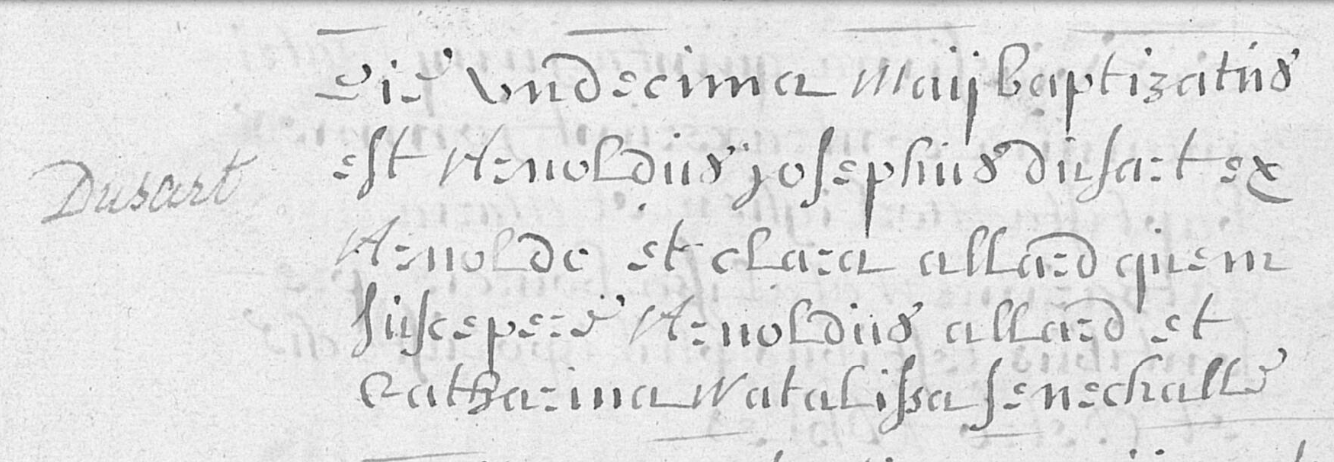 Die Undecima Maij baptizatus
est Arnoldus josephus dusart ex
Dusart
Arnoldo et clara allard quem
susceper~ Arnoldus allard et
Catharina Natalissa senechalle